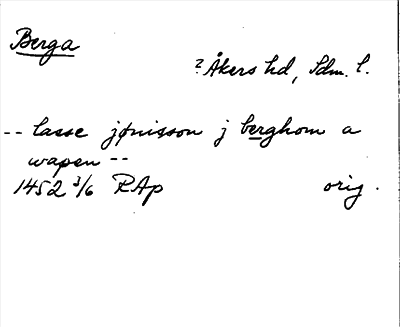 Berga
? Åkers hd, Sdm. l.
-- lasse jønisson j berghom a
wapen --
1452 3/6 RAp orig.